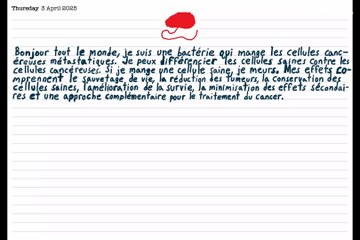 Thursday 3 April 2025
Bonjour tout le monde, je suis une bactérie qui mange les cellules canc-
éreuses métastatiques. Je peux différencier les cellules saines contre les
cellules cancéreuses. Si je mange une cellule saine, je meurs. Mes effets co-
mprennent le sauvetage de vie, la réduction des tumeurs, la conservation des
cellules saines, l'amélioration de la survie, la minimisation des effets secondai-
res et une approche complémentaire pour le traitement du cancer.